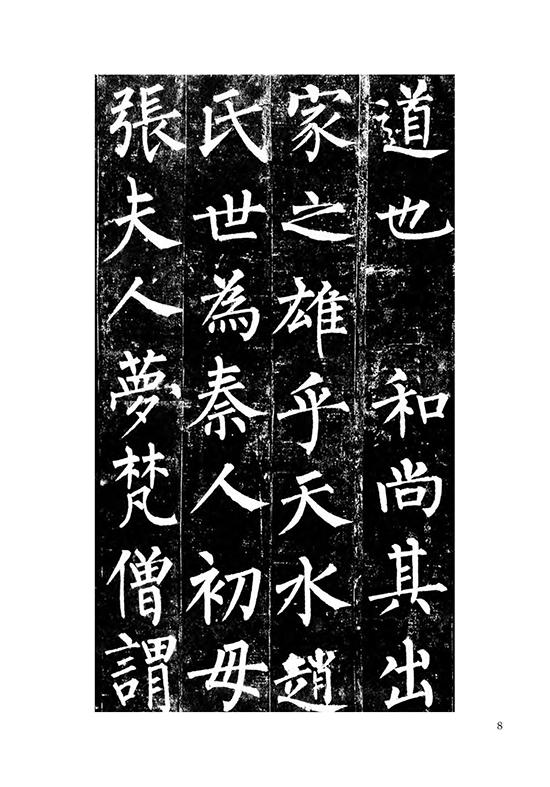 道也　和尚其出
家之雄乎天水趙
氏世為秦人初母
張夫人夢梵僧謂
8